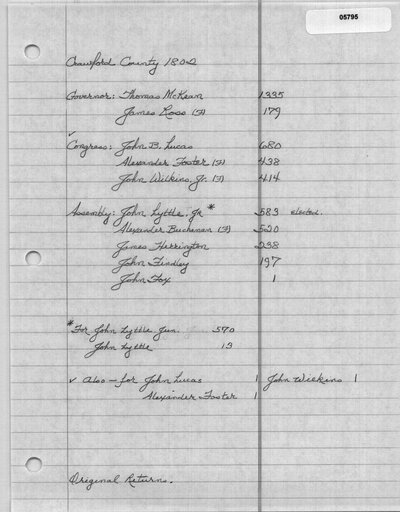 05795
Crawford County 1802
Governor: Thomas McKean 1335
James Ross (F) 179
✓
Congress: John B. Lucas 680
Alexander Foster (F) 438
John Wilkins, Jr. (F) 414
Assembly: John Lyttle, Jr * 583 elected.
Alexander Buchanan (F) 520
James Herrington 238
John Findley 197
John Fox 1
* For John Lyttle Jun. 570
John Lyttle 13
✓ Also - for John Lucas 1 John Wilkins 1
Alexander Foster 1
Original Returns.